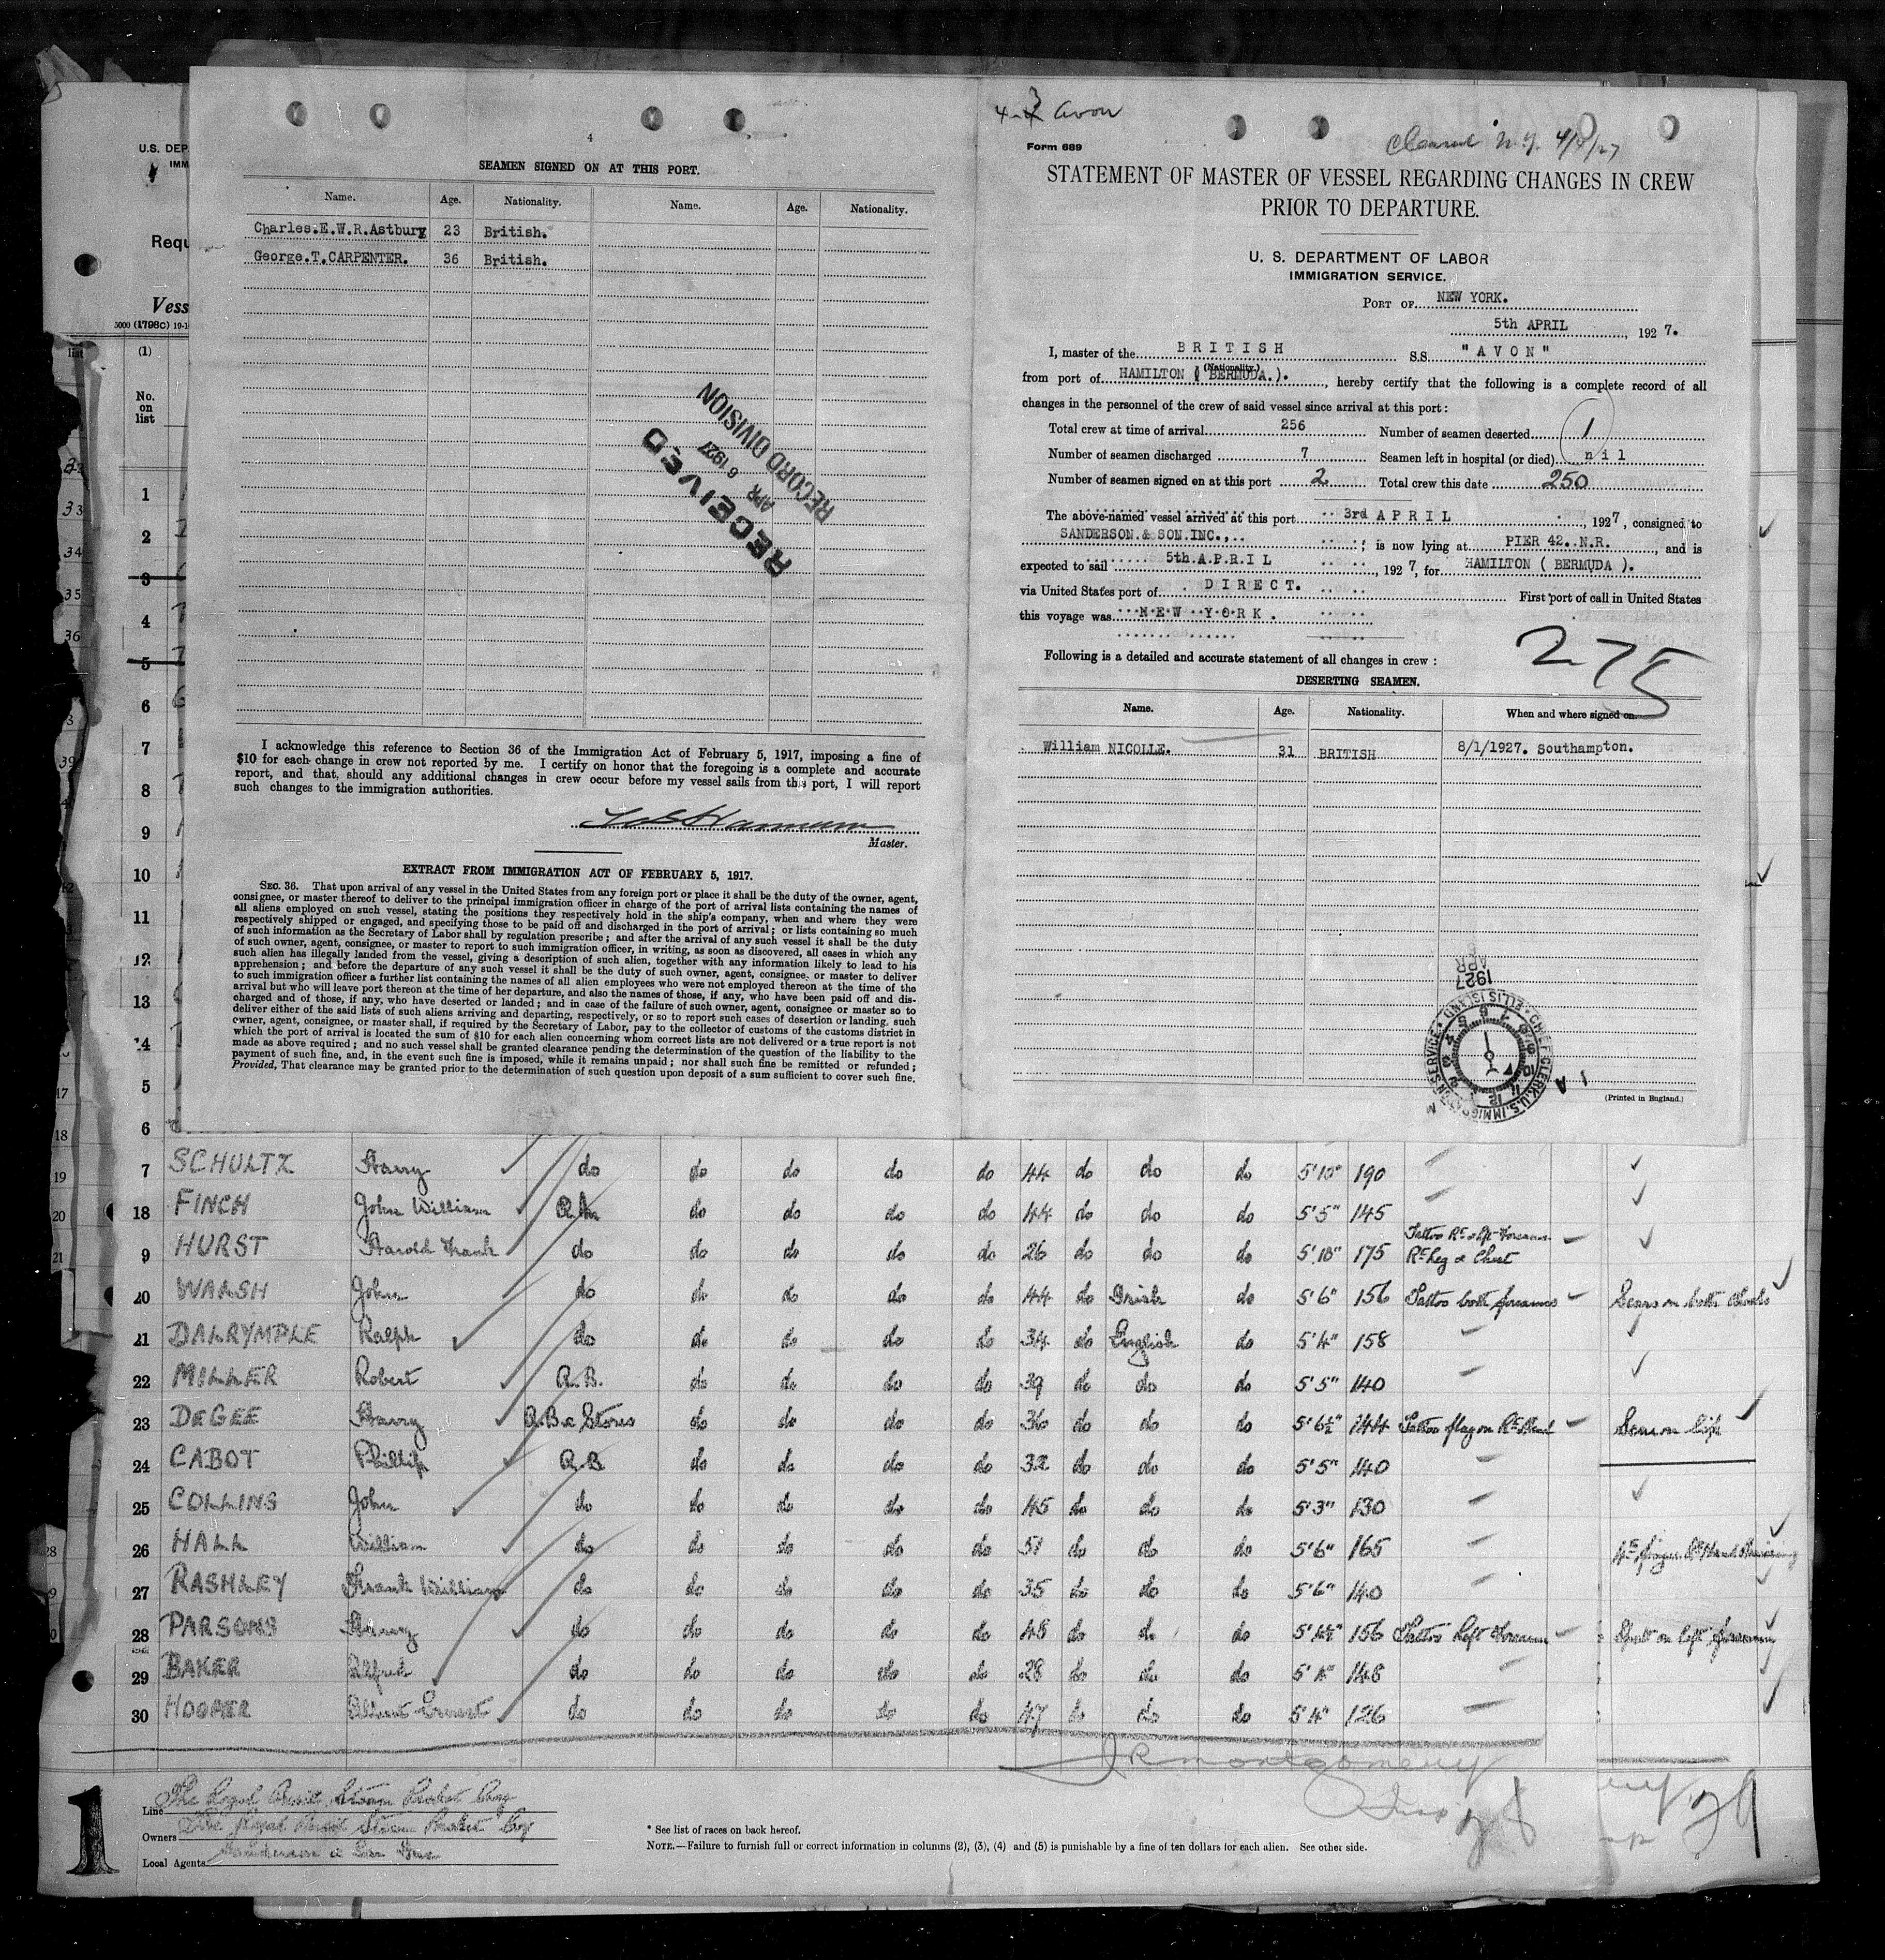 4
SEAMEN SIGNED ON AT THIS PORT.
Name. Age. Nationality. Name. Age. Nationality.
Charles.E.W.R.Astbury 23 British.
George.T.CARPENTER. 36 British.
RECEIVED
APR 6 1927
RECORD DIVISION
I acknowledge this reference to Section 36 of the Immigration Act of February 5, 1917, imposing a fine of
$10 for each change in crew not reported by me. I certify on honor that the foregoing is a complete and accurate
report, and that, should any additional changes in crew occur before my vessel sails from this port, I will report
such changes to the immigration authorities.
Master.
EXTRACT FROM IMMIGRATION ACT OF FEBRUARY 5, 1917.
SEC. 36. That upon arrival of any vessel in the United States from any foreign port or place it shall be the duty of the owner, agent,
consignee, or master thereof to deliver to the principal immigration officer in charge of the port of arrival lists containing the names of
all aliens employed on such vessel, stating the positions they respectively hold in the ship's company, when and where they were
respectively shipped or engaged, and specifying those to be paid off and discharged in the port of arrival; or lists containing so much
of such information as the Secretary of Labor shall by regulation prescribe; and after the arrival of any such vessel it shall be the duty
of such owner, agent, consignee, or master to report to such immigration officer, in writing, as soon as discovered, all cases in which any
such alien has illegally landed from the vessel, giving a description of such alien, together with any information likely to lead to his
apprehension; and before the departure of any such vessel it shall be the duty of such owner, agent, consignee, or master to deliver
to such immigration officer a further list containing the names of all alien employees who were not employed thereon at the time of the
arrival but who will leave port thereon at the time of her departure, and also the names of those, if any, who have been paid off and dis-
charged and of those, if any, who have deserted or landed; and in case of the failure of such owner, agent, consignee or master so to
deliver either of the said lists of such aliens arriving and departing, respectively, or so to report such cases of desertion or landing, such
owner, agent, consignee, or master shall, if required by the Secretary of Labor, pay to the collector of customs of the customs district in
which the port of arrival is located the sum of $10 for each alien concerning whom correct lists are not delivered or a true report is not
made as above required; and no such vessel shall be granted clearance pending the determination of the question of the liability to the
payment of such fine, and, in the event such fine is imposed, while it remains unpaid; nor shall such fine be remitted or refunded;
Provided, That clearance may be granted prior to the determination of such question upon deposit of a sum sufficient to cover such fine.
4-3 Avon
Cleared N.Y. 4/5/27
Form 689
STATEMENT OF MASTER OF VESSEL REGARDING CHANGES IN CREW
PRIOR TO DEPARTURE.
U. S. DEPARTMENT OF LABOR
IMMIGRATION SERVICE.
PORT OF NEW YORK.
5th APRIL, 1927.
I, master of the BRITISH S.S. "AVON"
(Nationality.)
from port of HAMILTON ( BERMUDA.)., hereby certify that the following is a complete record of all
changes in the personnel of the crew of said vessel since arrival at this port:
Total crew at time of arrival 256 Number of seamen deserted 1
Number of seamen discharged 7 Seamen left in hospital (or died) nil
Number of seamen signed on at this port 2 Total crew this date 250
The above-named vessel arrived at this port 3rd APRIL, 1927, consigned to
SANDERSON.& SON.INC., ; is now lying at PIER 42..N.R., and is
expected to sail 5th.A.P.R.I L, 1927, for HAMILTON ( BERMUDA ).
via United States port of DIRECT. First port of call in United States
this voyage was NEW YORK.
Following is a detailed and accurate statement of all changes in crew:
275
DESERTING SEAMEN.
Name. Age. Nationality. When and where signed on
William NICOLLE. 31 BRITISH 8/1/1927. Southampton.
APR 1927
CHIEF CLERK, U.S. IMMIGRATION SERVICE ELLIS ISLAND
(Printed in England.)
U.S. DEP
IMM
Requ
Vess
3000 (1798C) 19-1
list
(1)
No.
on
list
1
2
3
4
5
6
7
8
9
10
11
12
13
14
5
6
7 SCHULTZ Harry do do do do do 44 do do do 5'10" 190
18 FINCH John William do do do do 44 do do do 5'5" 145
9 HURST Harold Frank do do do do do 26 do do do 5'10" 175 Rt Leg & Chest
20 WALSH John do do do do do 44 do Irish do 5'6" 156 Tattoo both forearms Scars on both
21 DALRYMPLE Ralph do do do do do 34 do English do 5'4" 158
22 MILLER Robert A.B. do do do do 39 do do do 5'5" 140
23 DeGEE Harry A.B & Stores do do do do 36 do do do 5'6½" 144 Tattoo flag on Rt Scar on
24 CABOT Phillip A.B do do do do 32 do do do 5'5" 140
25 COLLINS John do do do do do 45 do do do 5'3" 130
26 HALL William do do do do do 51 do do do 5'6" 165
27 RASHLEY Frank William do do do do do 35 do do do 5'6" 140
28 PARSONS Harry do do do do do 48 do do do 156 Tattoo Left Forearm
29 BAKER Alfred do do do do do 28 do do do 5'4" 148
30 HOOPER Albert Ernest do do do do do 47 do do do 5'4" 126
J R Montgomery
1
Line The Royal Mail Steam Packet Coy
Owners The Royal Mail Steam Packet Coy
Local Agents Sanderson & Son Inc
* See list of races on back hereof.
NOTE.—Failure to furnish full or correct information in columns (2), (3), (4) and (5) is punishable by a fine of ten dollars for each alien. See other side.
28
29